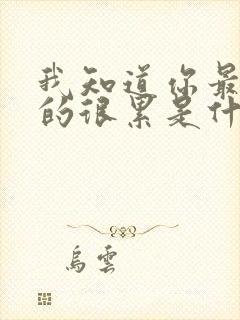 我知道你最
的很累是什
乌云